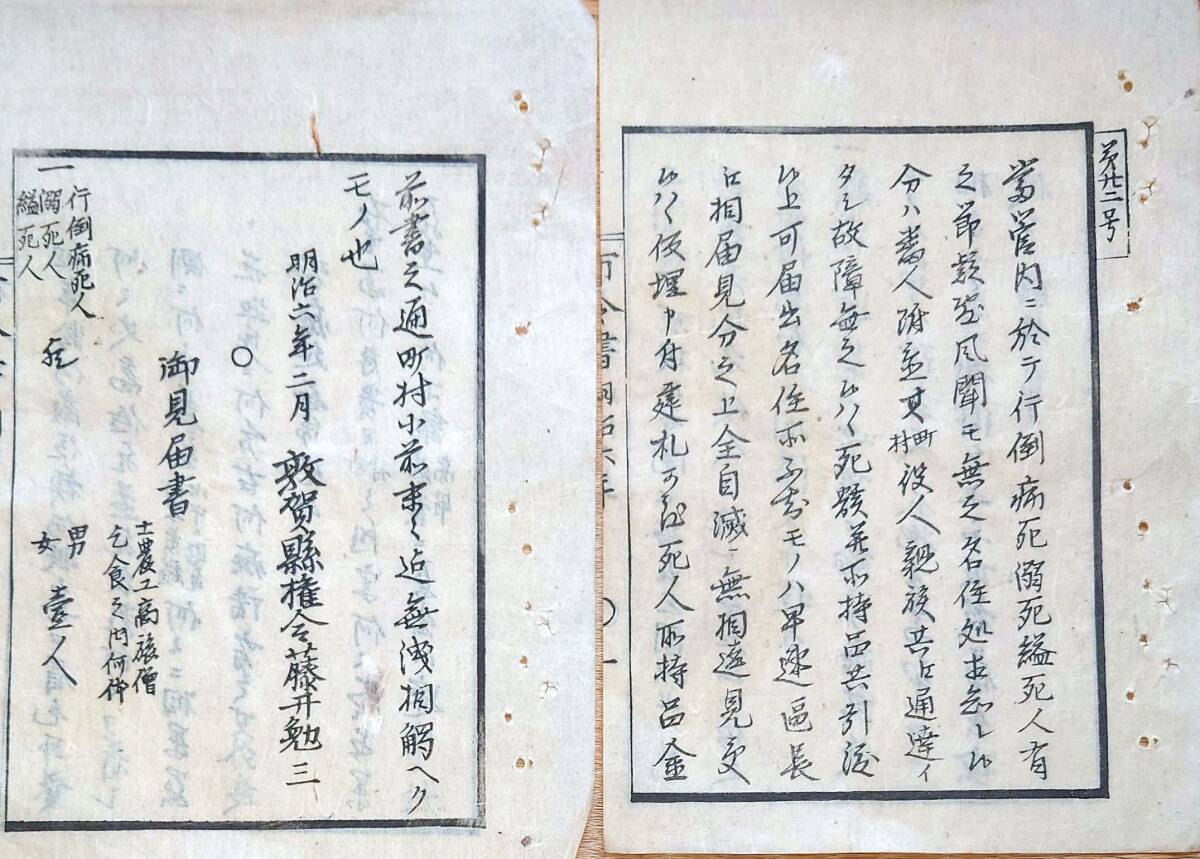 第廿二号
当管内ニ於テ行倒病死溺死縊死人有
之節疑敷風聞モ無之名住処相知レ候
分ハ番人附並其町村役人親族共江通達イ
タシ故障無之候ハヽ死骸并所持品共引渡
候上可届出名住所不知モノハ早速区長
江相届見分之上全自滅ニ無相違見受
候ハヽ仮埋申付建札可致死人所持品金
布令書明治六年
〇一
前書之通町村小前末々迄無洩相触ヘク
モノ也
明治六年二月 敦賀縣権令藤井勉三
〇
御見届書
一 行倒病死人
溺死人
縊死人
士農工商旅僧
乞食之内何体
男
女
壹人